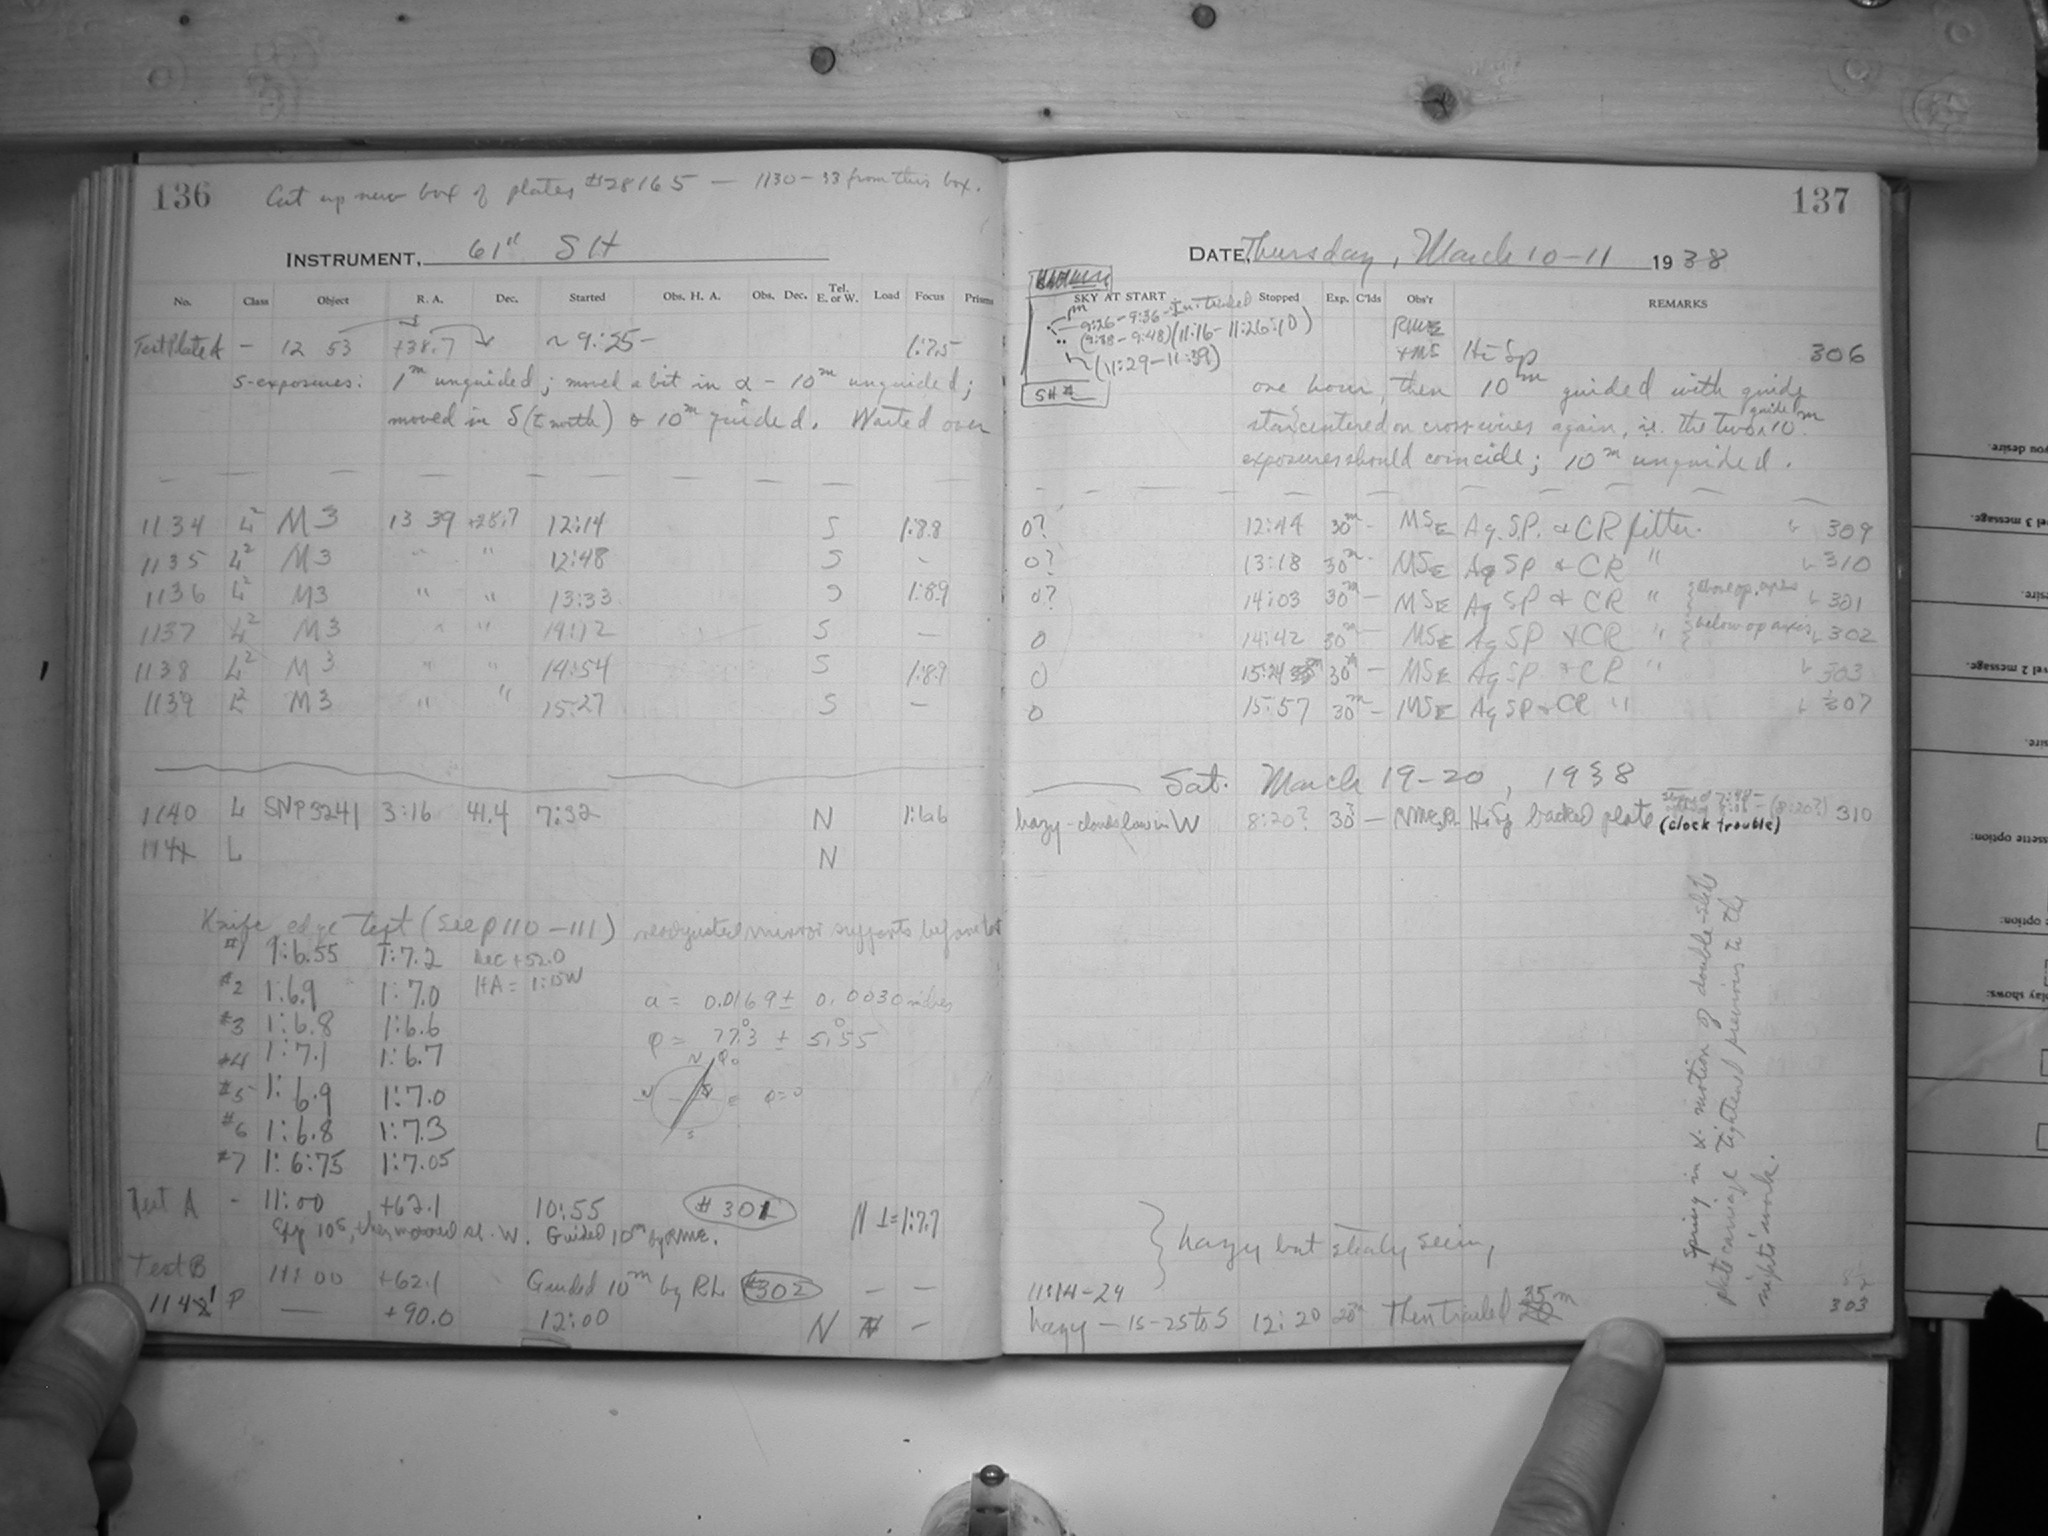 136 Cut up new box of plates #28165 — 1130-33 from this box.
INSTRUMENT, 61" SH
No. Class Object R. A. Dec. Started Obs. H. A. Obs. Dec. Tel. E. or W. Load Focus Prisms
Test Plate A — 12 53 +38.7 ~9:25- 1:7.5
5-exposures: 1m unguided; moved a bit in α - 10m unguided;
moved in δ ( north) & 10m guided. Waited over
1134 L2 M3 13 39 +28.7 12:14 S 1:8.8
1135 L2 M3 " " 12:48 S -
1136 L2 M3 " " 13:33 S 1:8.9
1137 L2 M3 " " 14:12 S —
1138 L2 M3 " " 14:54 S 1:8.9
1139 L2 M3 " " 15:27 S —
1140 L SNP3241 3:16 41.4 7:32 N 1:6.6
114 L N
Knife edge test (see p 110-111) readjusted mirror supports before test
#1 1:6.55 1:7.2 Dec +52.0
#2 1:6.9 1:7.0 HA = 1:15W
#3 1:6.8 1:6.6
#4 1:7.1 1:6.7
#5 1:6.9 1:7.0
#6 1:6.8 1:7.3
#7 1:6:75 1:7.05
a = 0.0169 ± 0.0030 inches
φ = 77°.3 ± 5°.55
N φ0
W E φ=0
S
Test A - 11:00 +62.1 10:55 #301 N I=1:7.7
Exp 10s, then moved sl. W. Guided 10m by RME.
Test B 11:00 +62.1 Guided 10m by RL #302 — —
1141 P — +90.0 12:00 N —
137
DATE, Thursday, March 10-11 1938
SKY AT START Stopped Exp. C'lds Obs'r REMARKS
9:26-9:36-
(9:38-9:48)(11:16-11:26:10)
(11:29-11:39)
SH #
RME
+MS Hi Sp 306
one hour, then 10m guided with guide
star centered on cross wires again, i.e. the two guided 10m
exposures should coincide; 10m unguided.
0? 12:44 30m - MSE Ag. S.P. & CR filter. 309
0? 13:18 30m - MSE Ag SP & CR " 310
0? 14:03 30m - MSE Ag SP & CR " above op. axis 301
0 14:42 30m - MSE Ag SP & CR " below op axis 302
0 15:24 30m - MSE Ag SP & CR " 303
0 15:57 30m - MSE Ag SP & CR " 307
Sat. March 19-20, 1938
hazy - clouds low in W 8:20? 30? — RME,RL Hi Sp backed plate (8:20?) 310
(clock trouble)
Spring in x. motion of double-slide
plate carriage tightened previous to the
nights' work.
hazy but steady seeing
11:14-24
hazy - 15-25 to S 12:20 20m Then trailed 35m 303
you desire.
vel 3 message.
sire.
vel 2 message.
sire.
assette option:
option:
play shows: